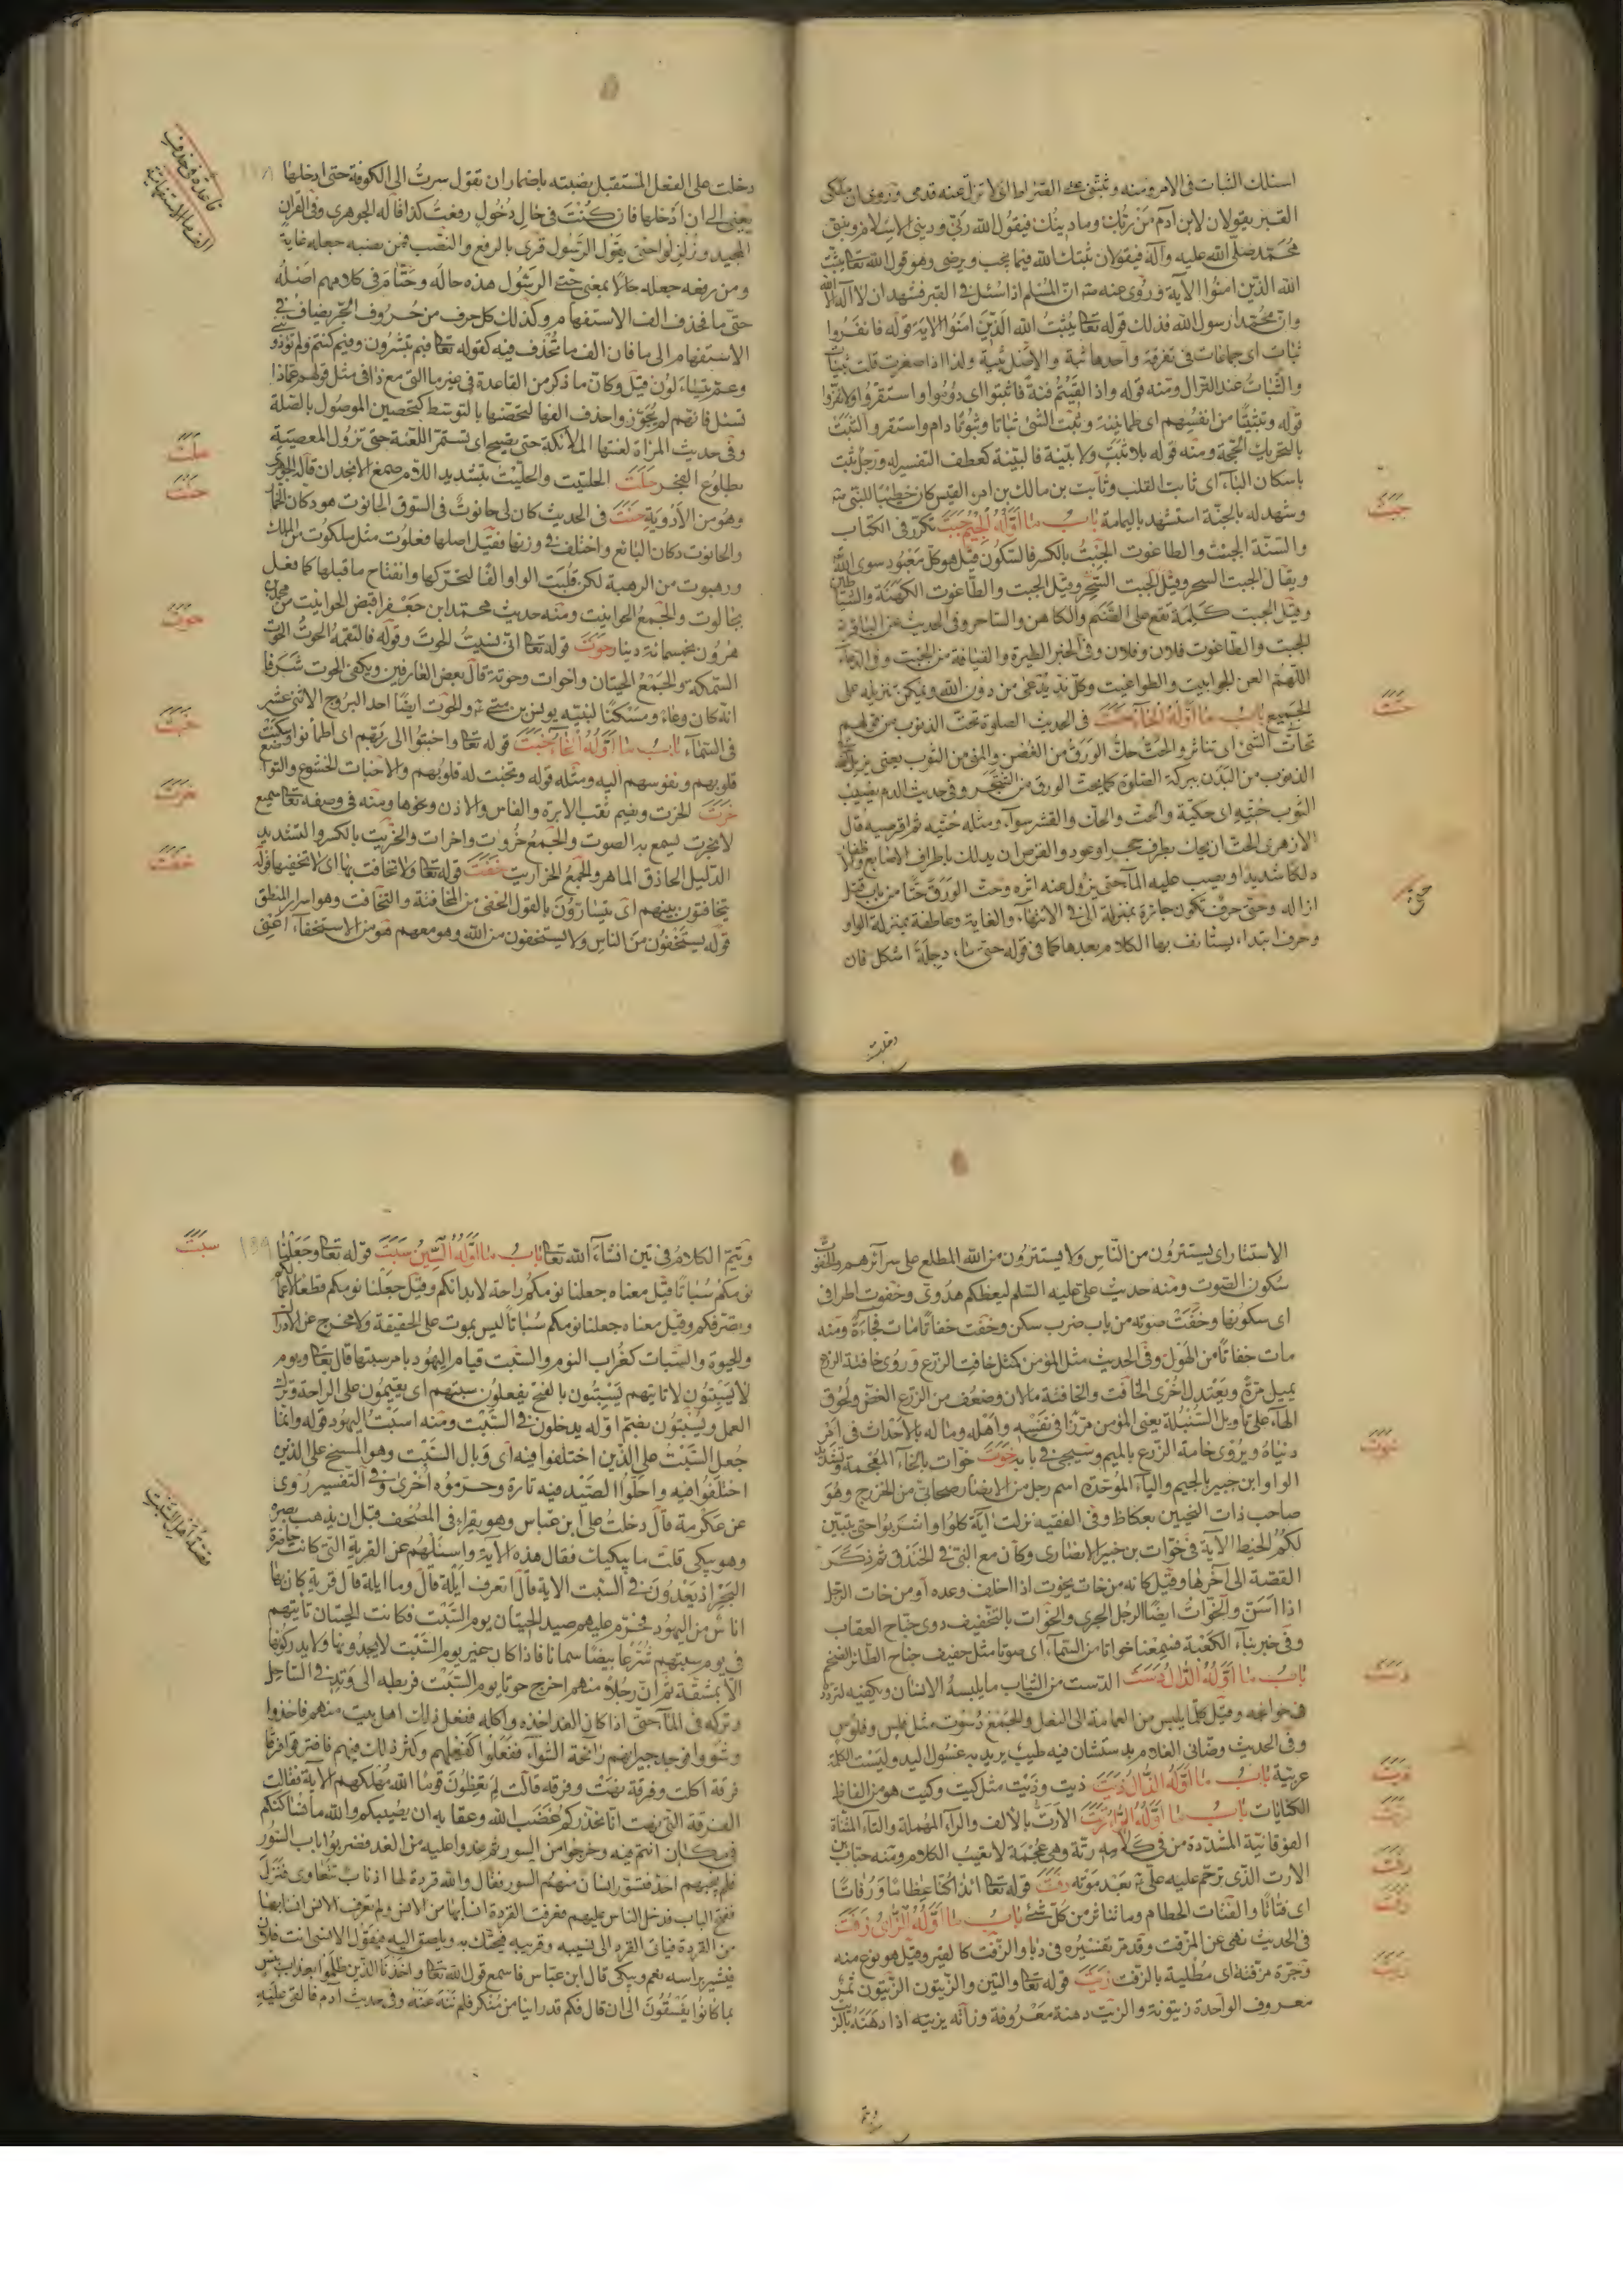 اسئلك الثبات فى الامر ومنه وثبتنى على الصراط اى لا تزل عنه قدمى وروى ان ملكى
القبر يقولان لابن آدم من ربك وما دينك فيقول الله ربى ودينى الاسلام ونبيى
محمد صلى الله عليه وآله فيقولان ثبتك الله فيما يحب ويرضى وهو قول الله تعا يثبت
الله الذين امنوا الآية وروى عنه ان المسلم اذا سئل فى القبر فشهد ان لا آله الا الله
وان محمدا رسول الله فذلك قوله تعا يثبت الله الذين امنوا الاية قوله فانفروا
ثبات اى جماعات فى تفرقة واحدها ثبة والاصل ثبية ولذا اذا صغرت قلت ثبيات
والثبات عند النزال ومنه قوله واذا لقيتم فئة فاثبتوا اى دوموا واستقروا ولا تفروا
قوله وتثبيتا من انفسهم اى طمانينة وثبت الشئ ثباتا وثبوتا دام واستقر والثبت
بالتحريك الحجة ومنه قوله بلا ثبت ولا بينة فالبينة كعطف التفسير له ورجل ثبت
باسكان الباء اى ثابت القلب وثابت بن مالك بن امرء القيس كان خطيبا للنبى
وشهد له بالجنة استشهد باليمامة باب ما اوله الجيم جبت تكرر فى الكتاب
والسنة الجبت والطاغوت الجبت بالكسر فالسكون قيل هو كل معبود سوى الله
ويقال الجبت السحر وقيل الجبت السحر وقيل الجبت والطاغوت الكهنة والشياطين
وقيل الجبت كلمة تقع على الصنم والكاهن والساحر وفى الحديث عن الباقر
الجبت والطاغوت فلان وفلان وفى الخبر الطيرة والقيافة من الجبت وفى الدعاء
اللهم العن الجوابيت والطواغيت وكل ند يدعى من دون الله ويمكن تنزيله على
الجميع باب ما اوله الحاء حتت فى الحديث الصلوة تحت الذنوب من قولهم
تحات الشئ اى تناثر والحت حك الورق من الغصن والمنى من الثوب يعنى يزيل الله
الذنوب من البدن ببركة الصلوة كما يحت الورق من الشجر وفى حديث الدم يصيب
الثوب حتيه اى حكية والحت والحك والقشر سواء ومثله حتيه ثم اقرصيه قال
الازهرى الحت ان يحك بطرف حجر او عود والقرص ان يدلك باطراف الاصابع والاظفار
دلكا شديدا ويصب عليه الماء حتى يزول عنه اثره وحت الورق حتا من باب قتل
ازاله وحتى حرف تكون جارة بمنزلة الى فى الانتهاء والغاية وعاطفة بمنزلة الواو
وحرف ابتداء يستانف بها الكلام بعدها كما فى قوله حتى ماء دجلة اشكل فان
جبت
حتت
حتى
دخلت
دخلت على الفعل المستقبل نصبته باضمار ان تقول سرت الى الكوفة حتى ادخلها
يعنى الى ان ادخلها فان كنت فى حال دخول رفعت كذا قاله الجوهرى وفى القران
المجيد وزلزلوا حتى يقول الرسول قرئ بالرفع والنصب فمن نصبه جعله غاية
ومن رفعه جعله حالا بمعنى حتى الرسول هذه حاله وحتام فى كلامهم اصله
حتى ما فحذف الف الاستفهام وكذلك كل حرف من حروف الجر يضاف فى
الاستفهام الى ما فان الف ما تحذف فيه كقوله تعا فبم تبشرون وفيم كنتم ولم تؤذوننى
وعم يتساءلون قيل وكان ما ذكر من القاعدة فى غير ما التى مع ذا فى مثل قولهم عماذا
تسئل فانهم لم يجوزوا حذف الفها لتحصنها بالتوسط كتحصين الموصول بالصلة
وفى حديث المرأة لعنتها الملائكة حتى يصبح اى تستمر اللعنة حتى تزول المعصية
بطلوع الفجر حلت الحلتيت والحلتيت بتشديد اللام صمغ الانجدان قاله الجوهرى
وهو من الادوية حنت فى الحديث كان لى حانوت فى السوق الحانوت هو دكان الخمار
والحانوت دكان البائع واختلف فى وزنها فقيل اصلها فعلوت مثل ملكوت من الملك
ورهبوت من الرهبة لكن قلبت الواو الفا لتحركها وانفتاح ما قبلها كما فعل
بجالوت والجمع الحوانيت ومنه حديث محمد ابن جعفر اقبض الحوانيت من محمد بن
هرون بخمسمائة دينار حوت قوله تعا انى نسيت الحوت وقوله فالتقمه الحوت الحوت
السمكة والجمع الحيتان واحوات وحوتة قال بعض العارفين ويكفى الحوت شرفا
انه كان وعاء ومسكنا لنبيه يونس بن متى والحوت ايضا احد البروج الاثنى عشر
فى السماء باب ما اوله الخاء خبت قوله تعا واخبتوا الى ربهم اى اطمأنوا وسكنت
قلوبهم ونفوسهم اليه ومثله قوله وتخبت له قلوبهم والاخبات الخشوع والتواضع
خرت الخرت ويضم ثقب الابرة والفاس والاذن ونحوها ومنه فى وصفه تعا سميع
لا بخرت يسمع به الصوت والجمع خروت واخرات والخريت بالكسر والتشديد
الدليل الحاذق الماهر والجمع الخراريت خفت قوله تعا ولا تخافت بها اى لا تخفيها قوله
يتخافتون بينهم اى يتسارون بالقول الخفى من المخافتة والتخافت وهو اسرار المنطق
قوله يستخفون من الناس ولا يستخفون من الله وهو معهم هو من الاستخفاء اعنى
قاعدة فى حذف
الف ما الاستفهامية
حلت
حنت
حوت
خبت
خرت
خفت
الاستتار اى يستترون من الناس ولا يستترون من الله المطلع على سرآئرهم والخفوت
سكون الصوت ومنه حديث على عليه السلم ليعظكم هدوى وخفوت اطرافى
اى سكونها وخفت صوته من باب ضرب سكن وخفت خفاتا مات فجاءة ومنه
مات خفاتا من الهول وفى الحديث مثل المؤمن كمثل خافت الزرع وروى خافتة الزرع
يميل مرة ويعتدل اخرى الخافت والخافتة مالان وضعف من الزرع الغض ولحوق
الهاء على تاويل السنبلة يعنى المؤمن مرزأ فى نفسه واهله وماله بالاحداث فى امر
دنياه ويروى خامة الزرع بالميم وسيجئ فى بابه خوت خوات بالخاء المعجمة وتشديد
الواو ابن جبير بالجيم والباء الموحدة اسم رجل من الانصار صحابى من الخزرج وهو
صاحب ذات النحيين بعكاظ وفى الفقيه نزلت آية كلوا واشربوا حتى يتبين
لكم الخيط الآية فى خوات بن جبير الانصارى وكان مع النبى فى الخندق ثم ذكر
القصة الى آخرها وقيل كانه من خات يخوت اذا اخلف وعده او من خات الرجل
اذا اسن والخوات ايضا الرجل الجرى والخوات بالتخفيف دوى جناح العقاب
وفى خبر بناء الكعبة فسمعنا خواتا من السماء اى صوتا مثل حفيف جناح الطائر الضخم
باب ما اوله الدال دست الدست من الثياب ما يلبسه الانسان ويكفيه لتردده
فى حوائجه وقيل كلما يلبس من العمامة الى النعل والجمع دسوت مثل فلس وفلوس
وفى الحديث وضأنى الغلام بدستشان فيه طيب يريد به غسول اليد وليست الكلمة
عربية باب ما اوله الذال ذيت ذيت وذيت مثل كيت وكيت هو من الفاظ
الكنايات باب ما اوله الراء رتت الارت بالالف والراء المهملة والتاء المثناة
الفوقانية المشددة من فى كلامه رتة وهى عجمة لا تغيب الكلام ومنه خباب بن
الارت الذى ترحم عليه على بعد موته رفت قوله تعا ائذا كنا عظاما ورفاتا
اى فتاتا والفتات الحطام وما تناثر من كل شئ باب ما اوله الزاى زفت
فى الحديث نهى عن المزفت وقد مر تفسيره فى دبا والزفت كالقير وقيل هو نوع منه
وجرة مزفتة اى مطلية بالزفت زيت قوله تعا والتين والزيتون الزيتون ثمر
معروف الواحدة زيتونة والزيت دهنة معروفة وزاته يزيته اذا دهنه بالزيت
خوت
دست
ذيت
رتت
رفت
زفت
زيت
ويتم
ويتم الكلام فى تين انشاء الله تعا باب ما اوله السين سبت قوله تعا وجعلنا
نومكم سباتا قيل معناه جعلنا نومكم راحة لابدانكم وقيل جعلنا نومكم قطعا لاعمالكم
وتصرفكم وقيل معناه جعلنا نومكم سباتا ليس بموت على الحقيقة ولا مخرج عن الادراك
والحيوة والسبات كغراب النوم والسبت قيام اليهود بامر سبتها قال تعا ويوم
لا يسبتون لا تاتيهم يسبتون بالفتح يفعلون سبتهم اى يقيمون على الراحة وترك
العمل ويسبتون بضم اوله يدخلون فى السبت ومنه اسبت اليهود قوله وانما
جعل السبت على الذين اختلفوا فيه اى وبال السبت وهو المسخ على الذين
اختلفوا فيه واحلوا الصيد فيه تارة وحرموه اخرى وفى التفسير روى
عن عكرمة قال دخلت على ابن عباس وهو يقراء فى المصحف قبل ان يذهب بصره
وهو يبكى قلت ما يبكيك فقال هذه الاية واسئلهم عن القرية التى كانت حاضرة
البحر اذ يعدون فى السبت الاية قال اتعرف ايلة قال وما ايلة قال قرية كان بها
اناس من اليهود فحرم عليهم صيد الحيتان يوم السبت فكانت الحيتان تاتيهم
فى يوم سبتهم شرعا بيضا سمانا فاذا كان غير يوم السبت لا يجدونها ولا يدركونها
الا بمشقة ثم ان رجلا منهم اخرج حوتا يوم السبت فربطه الى وتد فى الساحل
وتركه فى الماء حتى اذا كان الغد اخذه واكله ففعل ذلك اهل بيت منهم فاخذوا
وشووا فوجد جيرانهم رائحة الشواء ففعلوا كفعلهم وكثر ذلك فيهم فافترقوا فرقا
فرقة اكلت وفرقة نهت وفرقة قالت لم تعظون قوما الله مهلكهم الاية فقالت
الفرقة التى نهت انا نحذركم غضب الله وعقابه ان يصيبكم والله ما نساكنكم
فى مكان انتم فيه وخرجوا من السور ثم غدوا عليه من الغد فضربوا باب السور
فلم يجبهم احد فتسور انسان منهم السور فقال والله قردة لها اذناب تتعاوى فنزل
ففتح الباب فدخل الناس عليهم فعرفت القردة انسابها من الانس ولم تعرف الانس انسابها
من القردة فياتى القرد الى نسيبه وقريبه فيحتك به ويلصق اليه فيقول الانسى انت فلان
فيشير براسه نعم ويبكى قال ابن عباس فاسمع قول الله تعا واخذنا الذين ظلموا بعذاب بئيس
بما كانوا يفسقون الى ان قال فكم قد راينا من منكر فلم ننه عنه وفى حديث آدم فالقى عليه
سبت
قصة اهل السبت